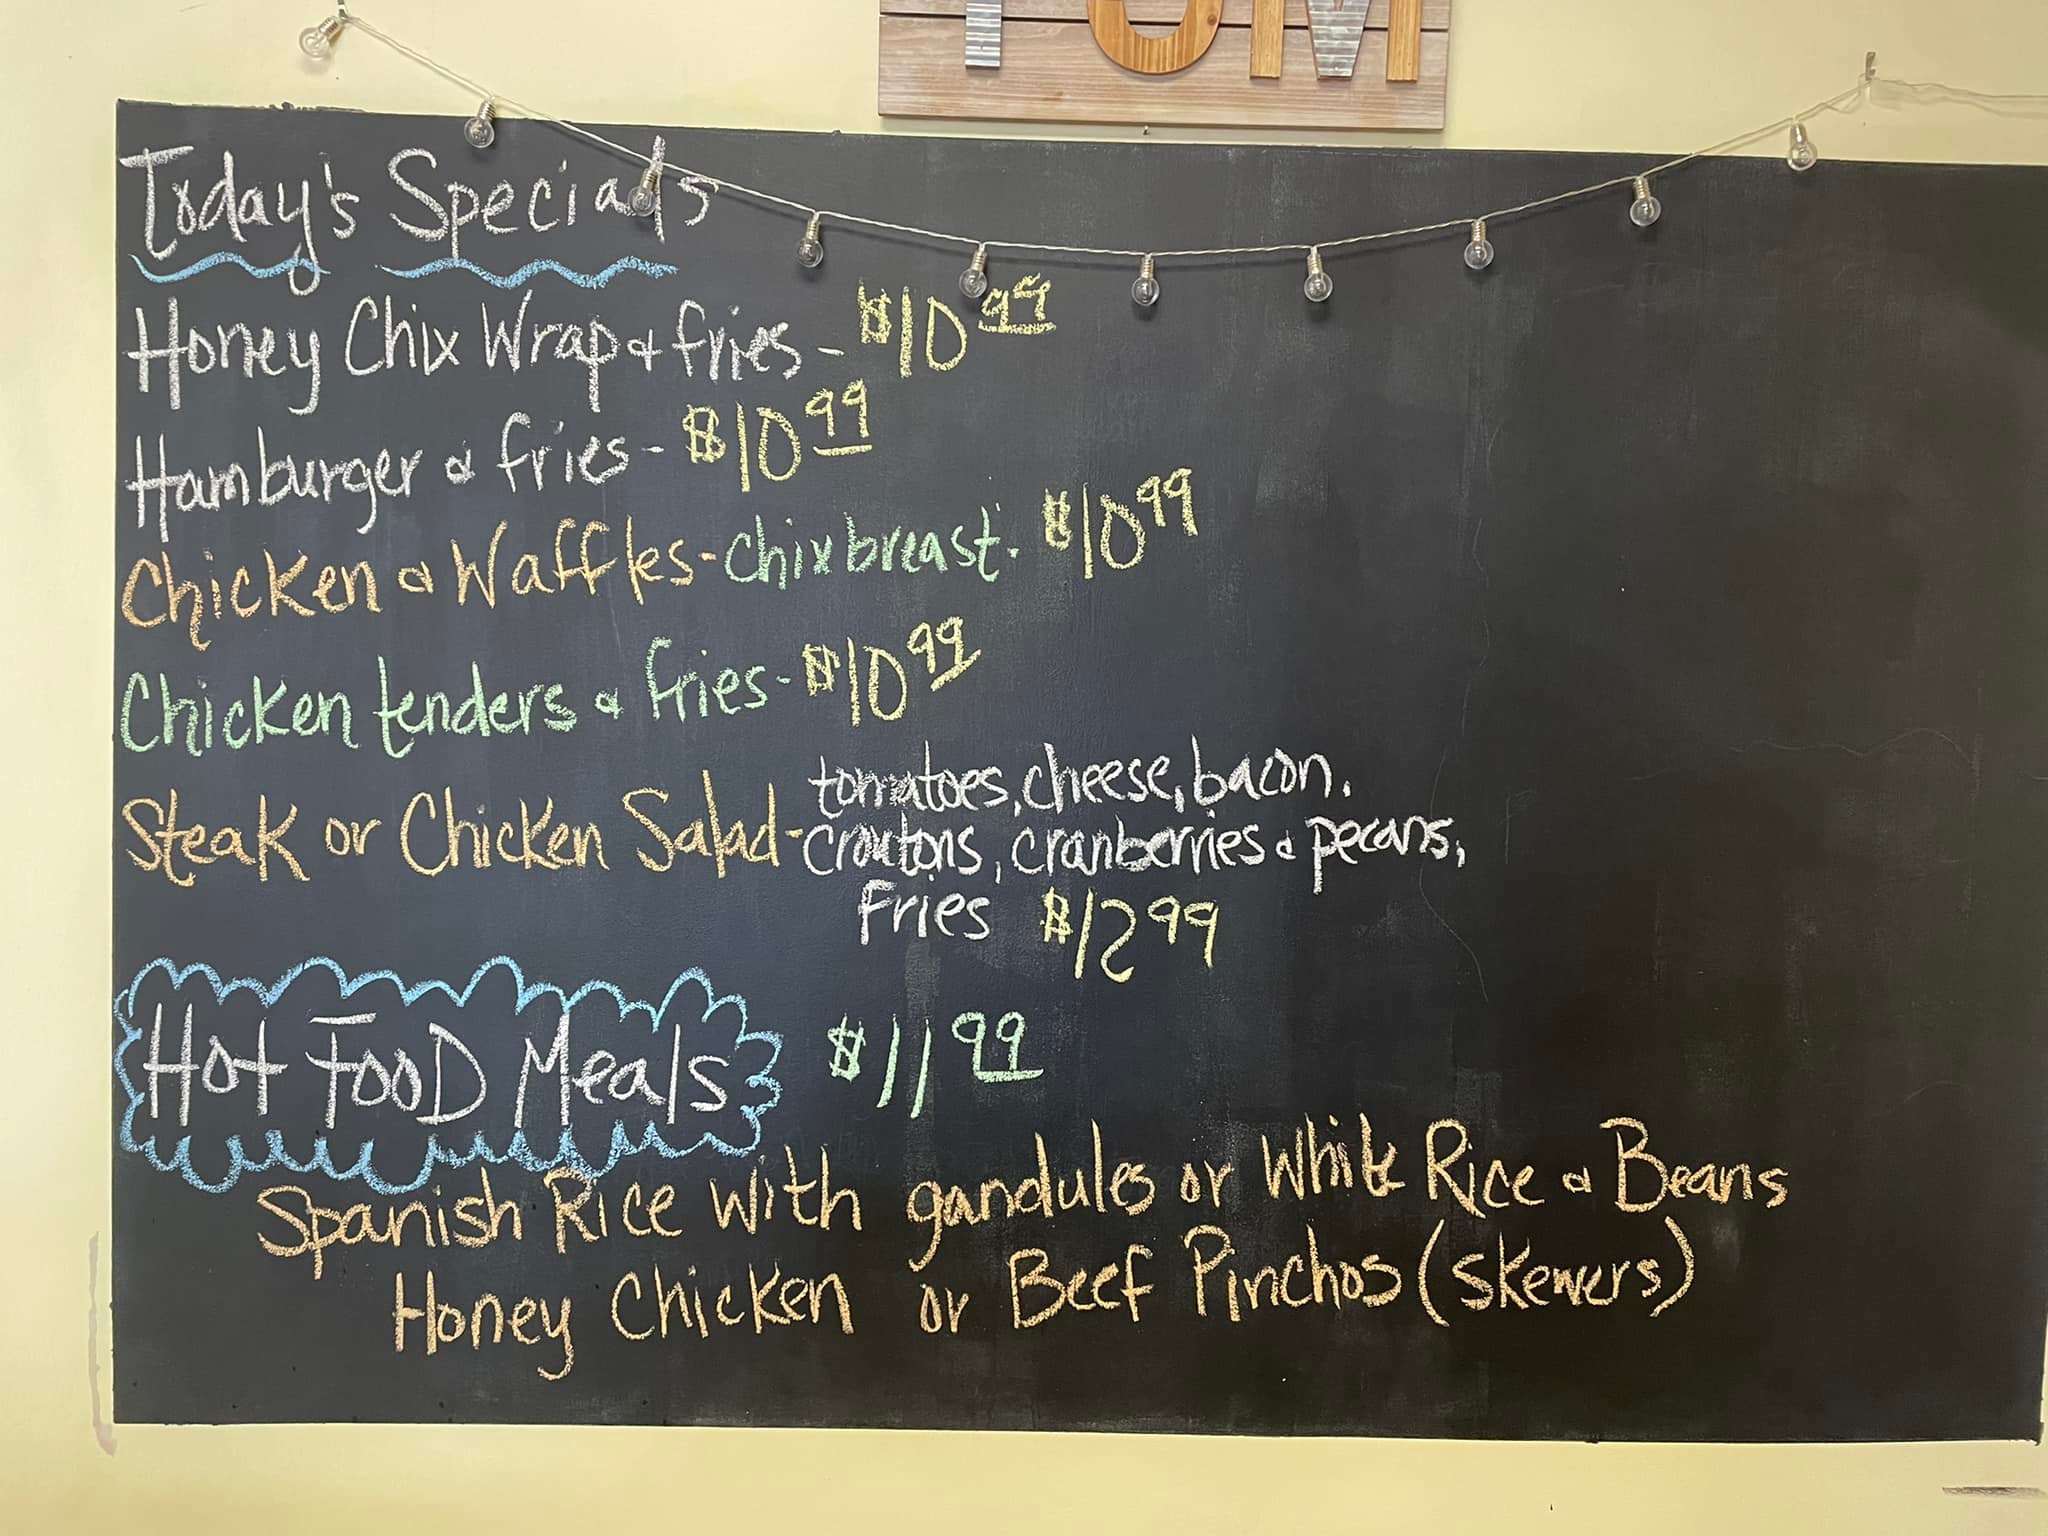 YUM
Today's Specials
Honey Chix Wrap & fries - $10.99
Hamburger & fries - $10.99
Chicken & Waffles - chix breast. $10.99
Chicken tenders & fries - $10.99
Steak or Chicken Salad - tomatoes, cheese, bacon.
croutons, cranberries & pecans,
Fries $12.99
Hot FOOD Meals $11.99
Spanish Rice with gandules or White Rice & Beans
Honey Chicken or Beef Pinchos (skewers)